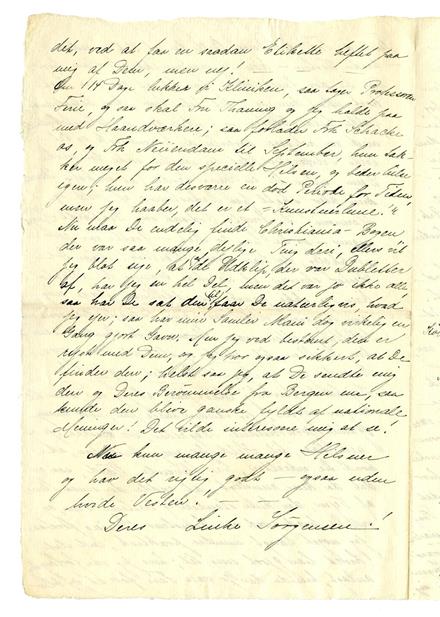 det, ved at faa en saadan Etikette heftet paa
mig af Dem, men nej!
Om 14 Dage lukkes Kliniken, saa tager Professoren
Ferie, og saa skal Frk Thannes og jeg holde paa
med Haandværkere; saa forlader Frk Schacke
os, og Frk Neiiendam til September, hun tak-
ker meget for den specielle Hilsen, og beder hilse
igen; hun har desværre en død Periode for Tiden,
men jeg haaber, det er et "Kunstnerlune."
Nu maa De endelig finde Christiania-Bogen
der var saa mange dejlige Ting deri, ellers vil
jeg blot sige, at de Udklip, der var Dubletter
af, har jeg en hel Del, men det var jo ikke alle
saa har De sat den faar De naturligvis, hvad
jeg ejer; saa har min Samler Mani dog virkelig en
Gang gjort Gavn. Men jeg ved bestemt, den er
rejst med Dem, og jeg tror ogsaa sikkert, at De
finder den; helst saa jeg, at De sendte mig
den og Deres Berømmelse fra Bergen me, saa
kunde den blive ganske fyldt af nationale
Meninger! Det vilde interessere mig at se!
Nu kun mange mange Hilsner
og hav det rigtig godt – ogsaa uden
hvide Vesten! –
Deres Linke Jørgensen!